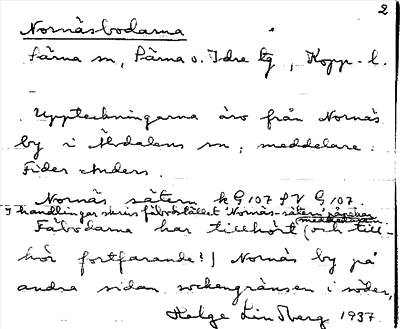 2
Nornäsbodarna
Särna sn, Särna o. Idre tg, Kopp. l.
Uppteckningarna äro från Nornäs
by i Älvdalens sn, meddelare:
Fider Anders.
Nornäs sätern h G 107 f V G 107.
I handlingar skrivs fäbodstället Nornäs-
Fäbodarna har tillhört (och till-
hör fortfarande?) Nornäs by på
andra sidan sockengränsen i söder,
Helge Lindberg 1937.